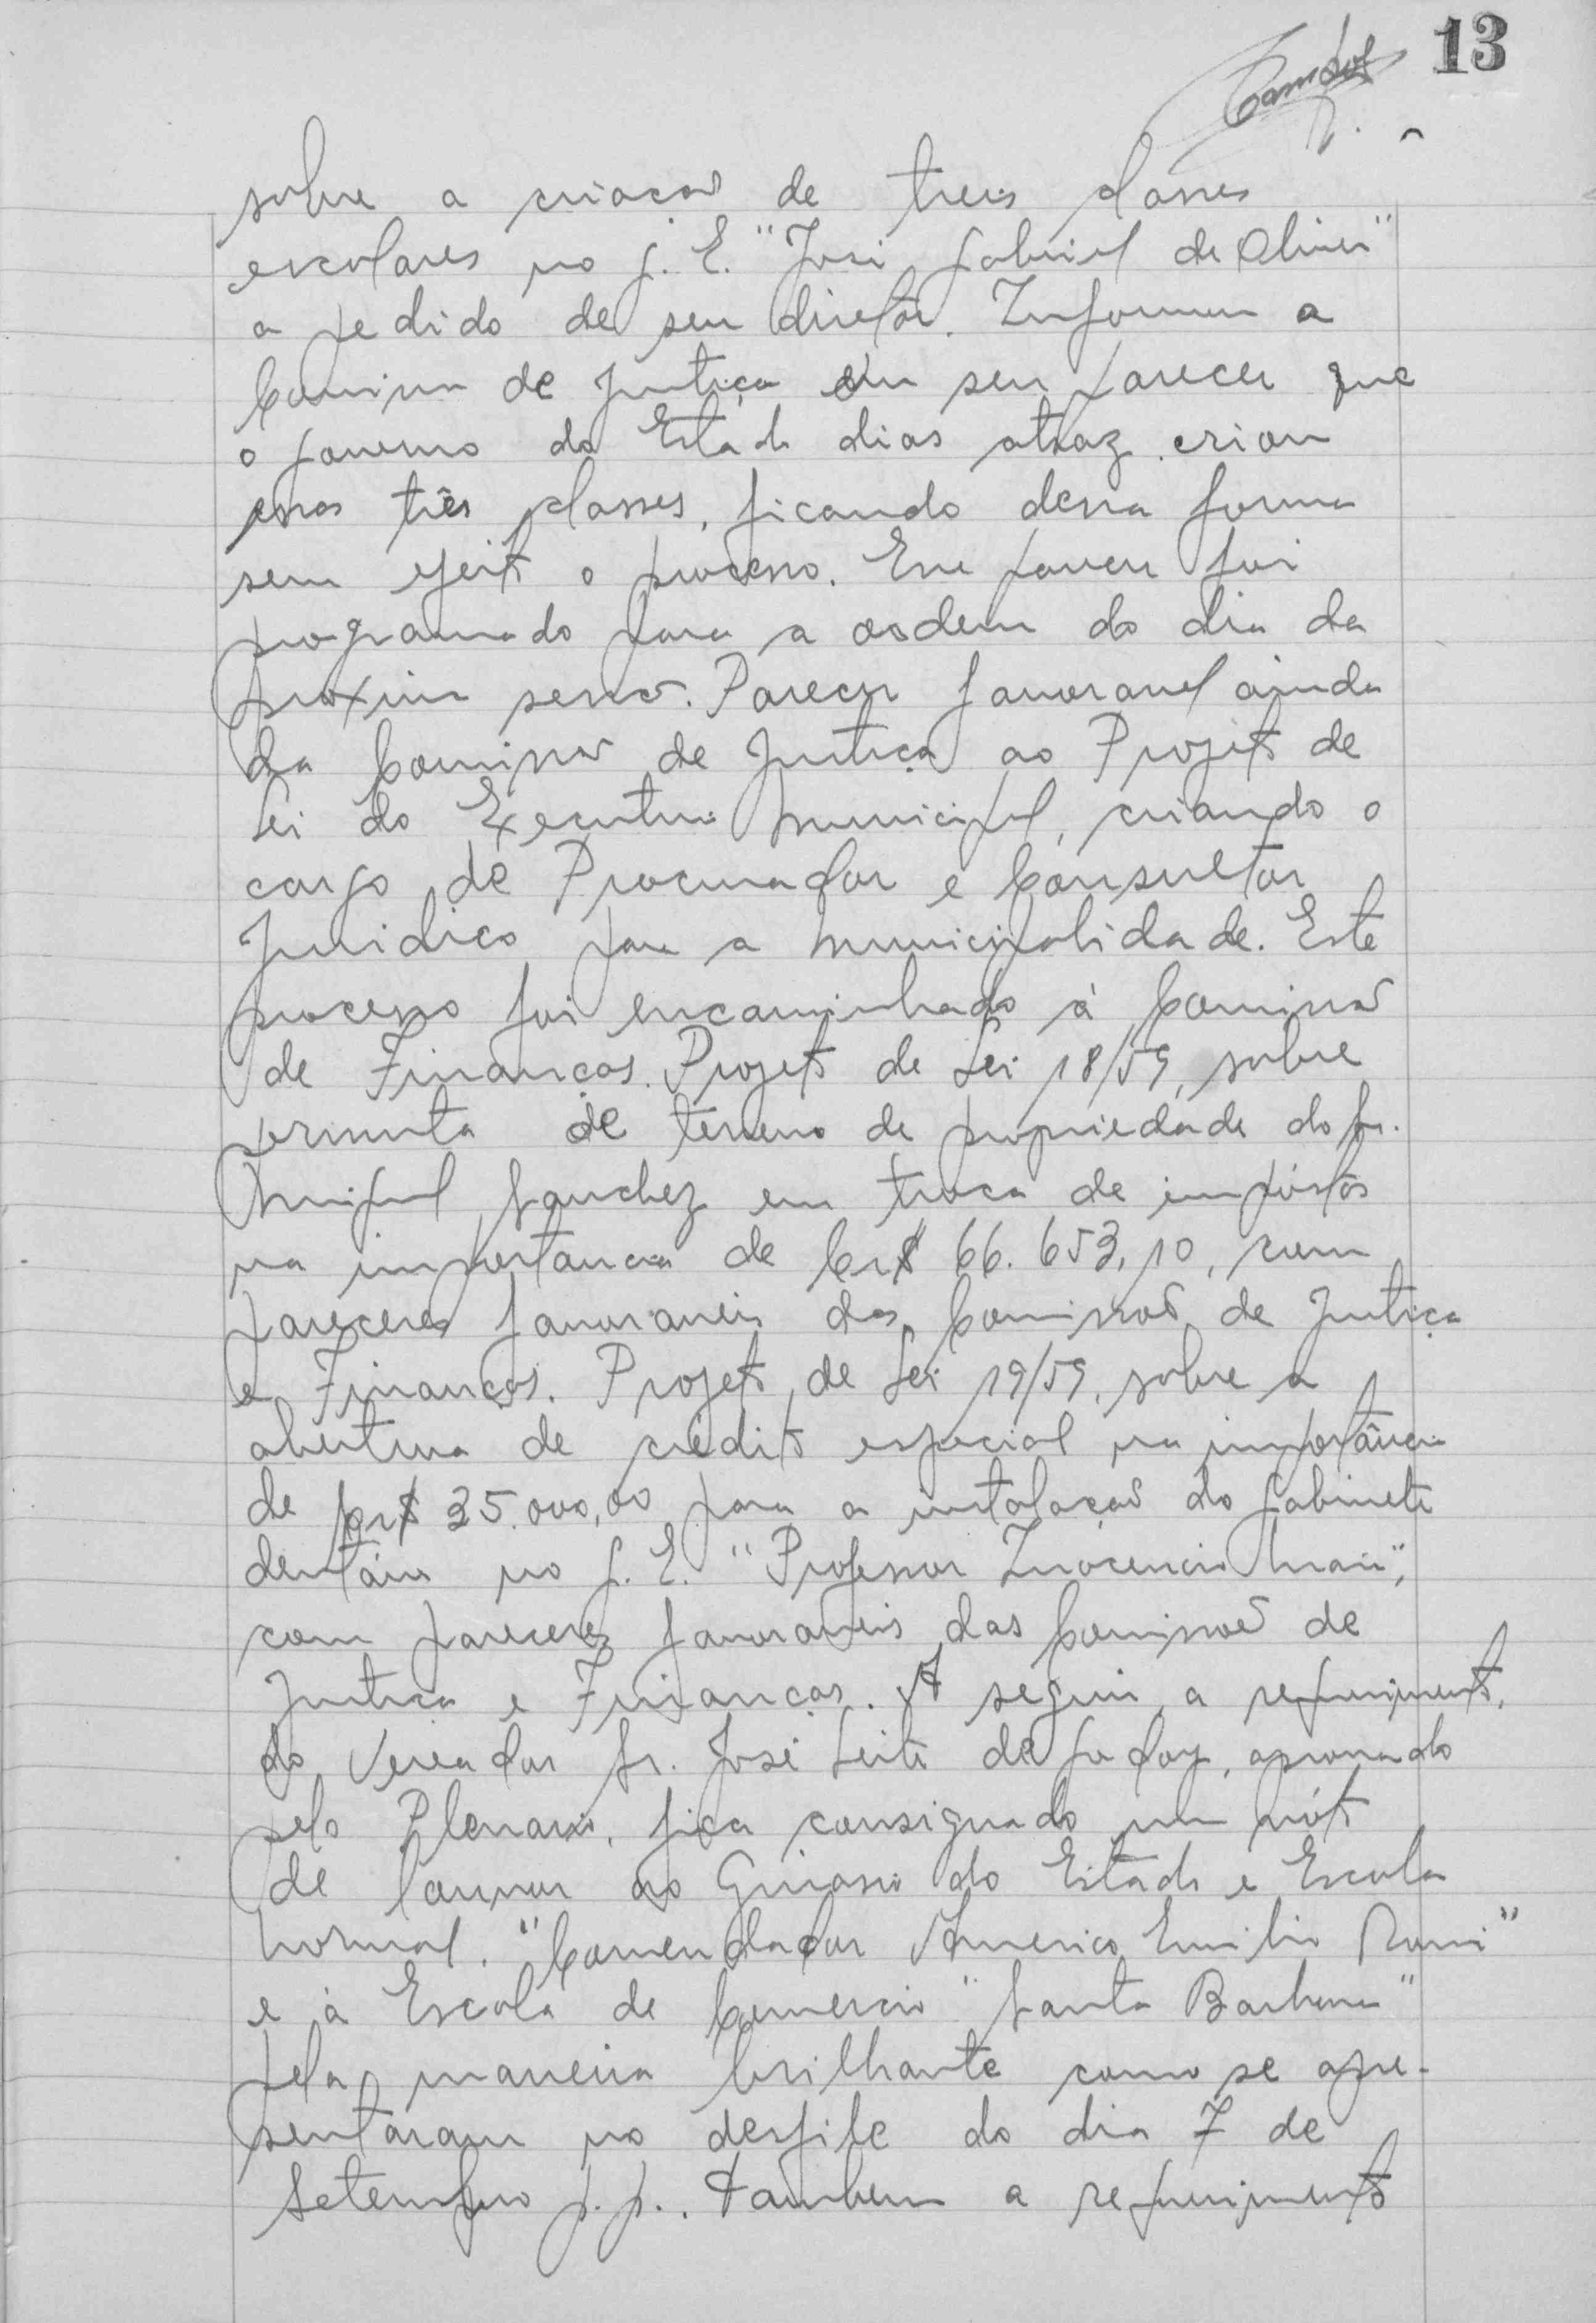 13
sobre a criação de treis classes
escolares no G. E. "José Gabriel de Oliveira"
a pedido de seu diretôr. Informou a
Comissão de Justiça em seu parecer que
o Governo do Estado dias atraz criou
essas três classes, ficando dessa forma
sem efeito o processo. Esse parecer foi
programado para a ordem do dia da
proxima sessão. Parecer favoravel ainda
da Comissão de Justiça ao Projeto de
Lei do Executivo Municipal, criando o
cargo de Procurador e Consultor
Juridico para a Municipalidade. Este
processo foi encaminhado à Comissão
de Finanças. Projeto de Lei 18/59, sobre
permuta de terreno de propriedade do Sr.
Sanchez em troca de impôstos
na importancia de Cr$ 66.653,10, com
pareceres favoraveis das Comissões de Justiça
e Finanças. Projeto de Lei 19/59, sobre a
abertura de crédito especial na importância
de Cr$ 35.000,00 para a instalação do Gabinete
dentário no G. E. "Professor Inocencio Maia",
com pareceres favoraveis das Comissões de
Justiça e Finanças. A seguir, a requerimento,
do Vereador Sr. José Leite de Godoy, aprovado
pelo Plenario, fica consignado um vóto
de louvor ao Ginasio do Estado e Escola
Normal. "Comendador Americo Emilio Romi"
e à Escola de Comercio "Santa Barbara"
pela maneira brilhante como se apre-
sentáram no desfile do dia 7 de
Setembro p.p.. Tambem a requerimento